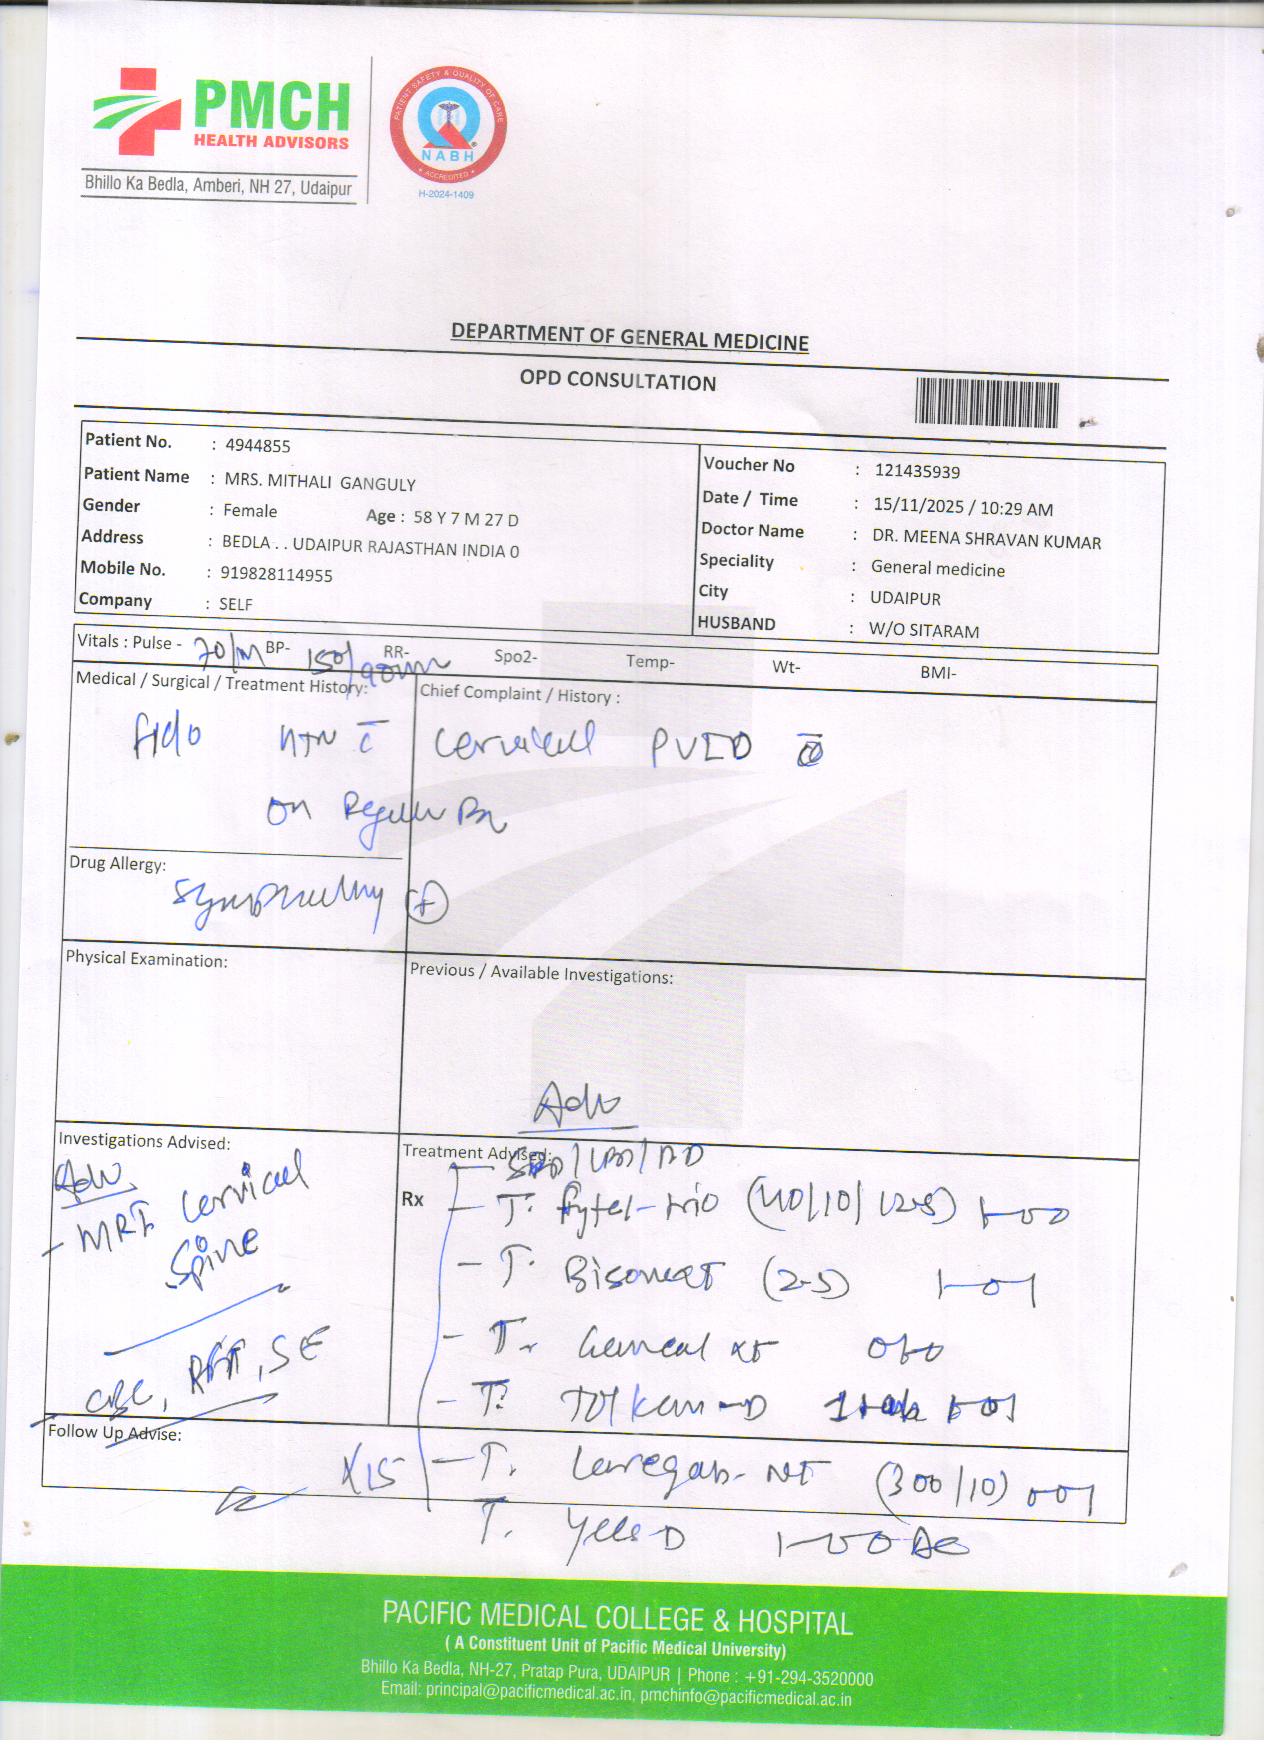 PMCH
HEALTH ADVISORS
Bhillo Ka Bedla, Amberi, NH 27, Udaipur
PATIENT SAFETY & QUALITY OF CARE
NABH
ACCREDITED
H-2024-1409
DEPARTMENT OF GENERAL MEDICINE
OPD CONSULTATION
Patient No. : 4944855
Patient Name : MRS. MITHALI GANGULY
Gender : Female Age : 58 Y 7 M 27 D
Address : BEDLA . . UDAIPUR RAJASTHAN INDIA 0
Mobile No. : 919828114955
Company : SELF
Voucher No : 121435939
Date / Time : 15/11/2025 / 10:29 AM
Doctor Name : DR. MEENA SHRAVAN KUMAR
Speciality : General medicine
City : UDAIPUR
HUSBAND : W/O SITARAM
Vitals : Pulse - 70/m BP- 150/90 RR- Spo2- Temp- Wt- BMI-
Medical / Surgical / Treatment History:
Chief Complaint / History :
HTN c̄ cervical
on Regular Rx
Drug Allergy:
Physical Examination:
Previous / Available Investigations:
Adv
Investigations Advised:
Adv
- MRI cervical
spine
CBC, RFT, SE
Treatment Advised:
Rx
- T. (40/10/12.5) 1-0-0
- T. (2.5) 1-0-1
- T. 0-1-0
- T. D 1-0-1
- T. NT (300/10) 0-0-1
T. D 1-0-0
X15
Follow Up Advise:
PACIFIC MEDICAL COLLEGE & HOSPITAL
( A Constituent Unit of Pacific Medical University)
Bhillo Ka Bedla, NH-27, Pratap Pura, UDAIPUR | Phone : +91-294-3520000
Email: principal@pacificmedical.ac.in, pmchinfo@pacificmedical.ac.in